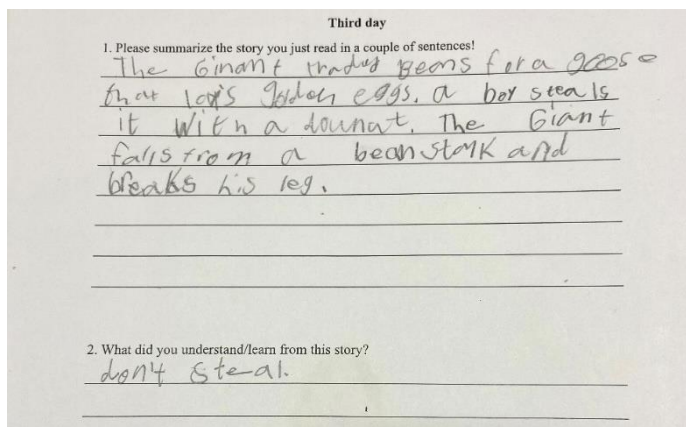 Third day
1. Please summarize the story you just read in a couple of sentences!
The Ginant trades Beans for a goose
that lay's golden eggs. a boy steals
it with a dounat. The Giant
falls from a beanstalk and
breaks his leg.
2. What did you understand/learn from this story?
don't steal.